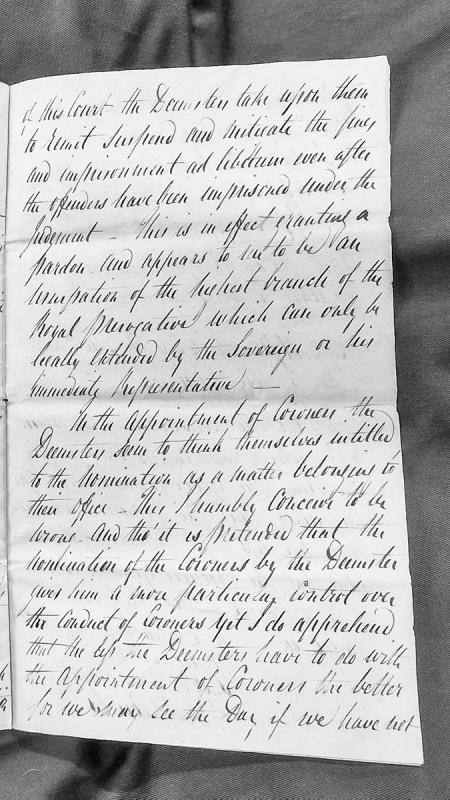 of this Court the Deemsters take upon them
to remit suspend and mitigate the fines
and imprisonment ad libitum even after
the offenders have been imprisoned under the
Judgement – This is in effect granting a
pardon and appears to me to be an
Usurpation of the highest branch of the
Royal Prerogative which can only be
legally extended by the Sovereign or his
immediate Representative —
In the Appointment of Coroners the
Deemsters seem to think themselves intitled
to the nomination as a matter belonging to
their Office – This I humbly Conceive to be
wrong. And tho' it is pretended that the
nomination of the Coroners by the Deemster
gives him a more particular Control over
the Conduct of Coroners yet I do apprehend
that the less the Deemsters have to do with
the Appointment of Coroners the better
for we may see the Day, if we have not